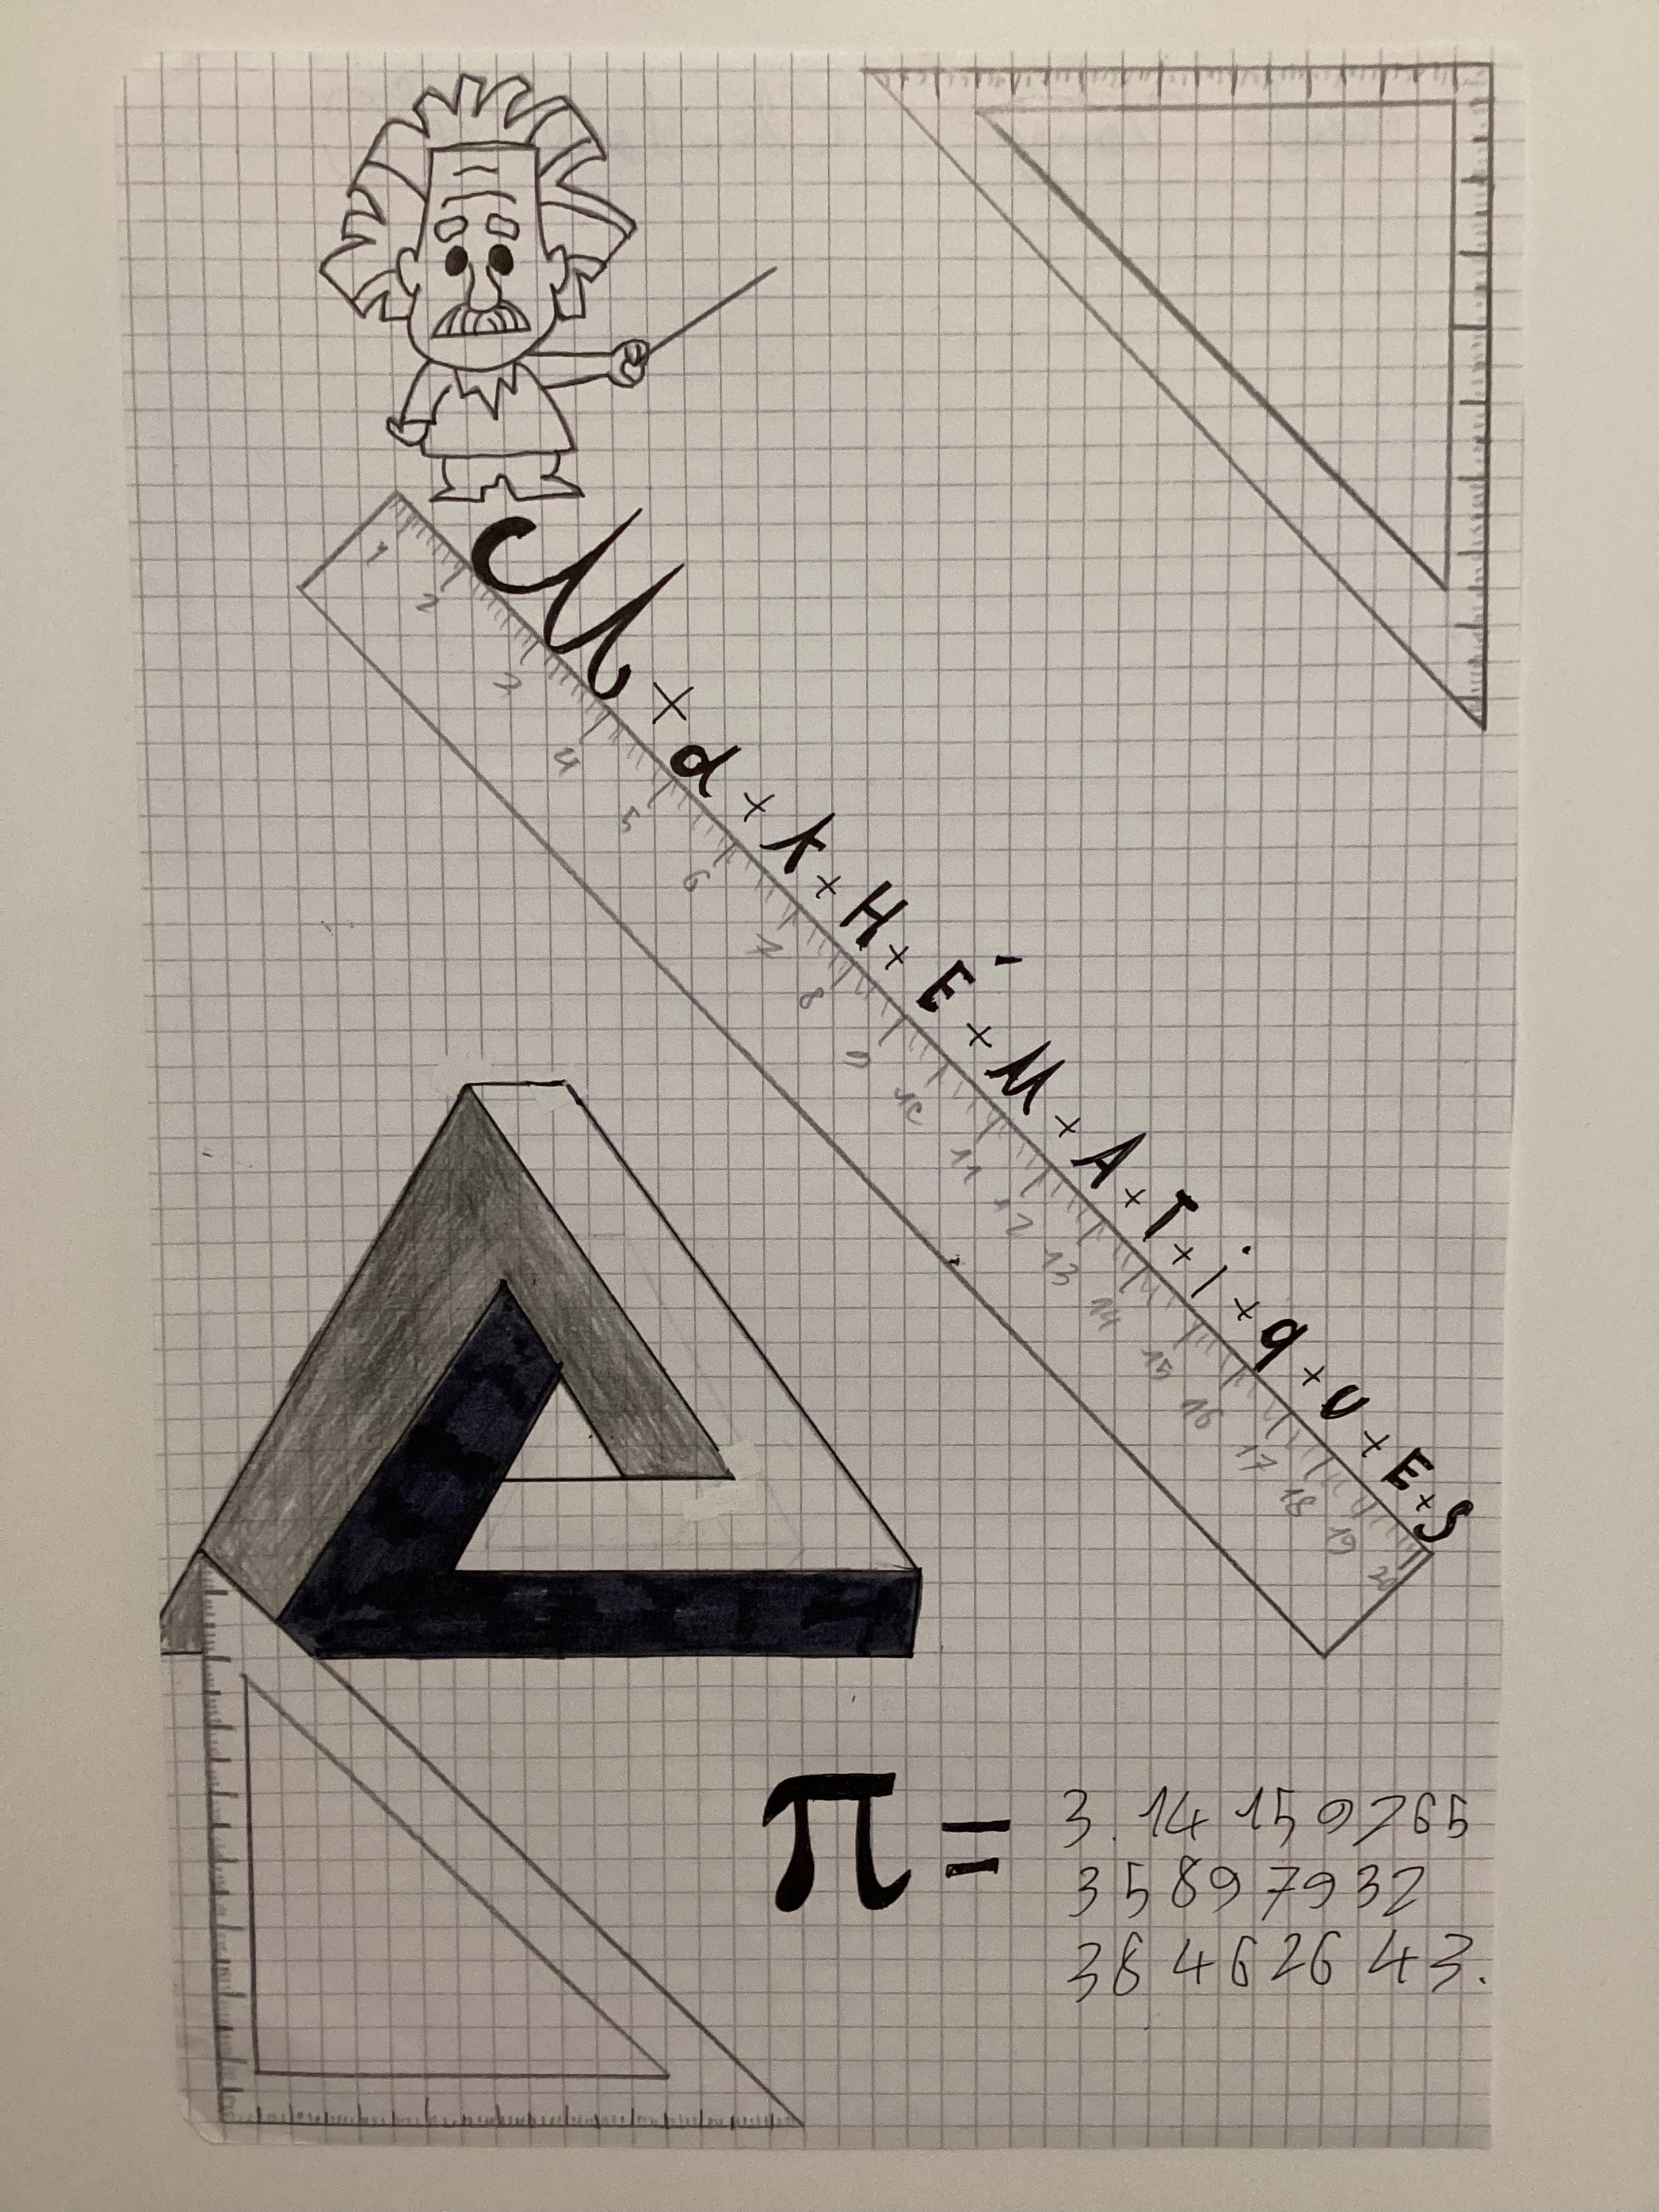 M × a × t × H × É × M × A × T × i × q × u × E × S
1 2 3 4 5 6 7 8 9 10 11 12 13 14 15 16 17 18 19 20
π = 3.14159265
35897932
38462643.